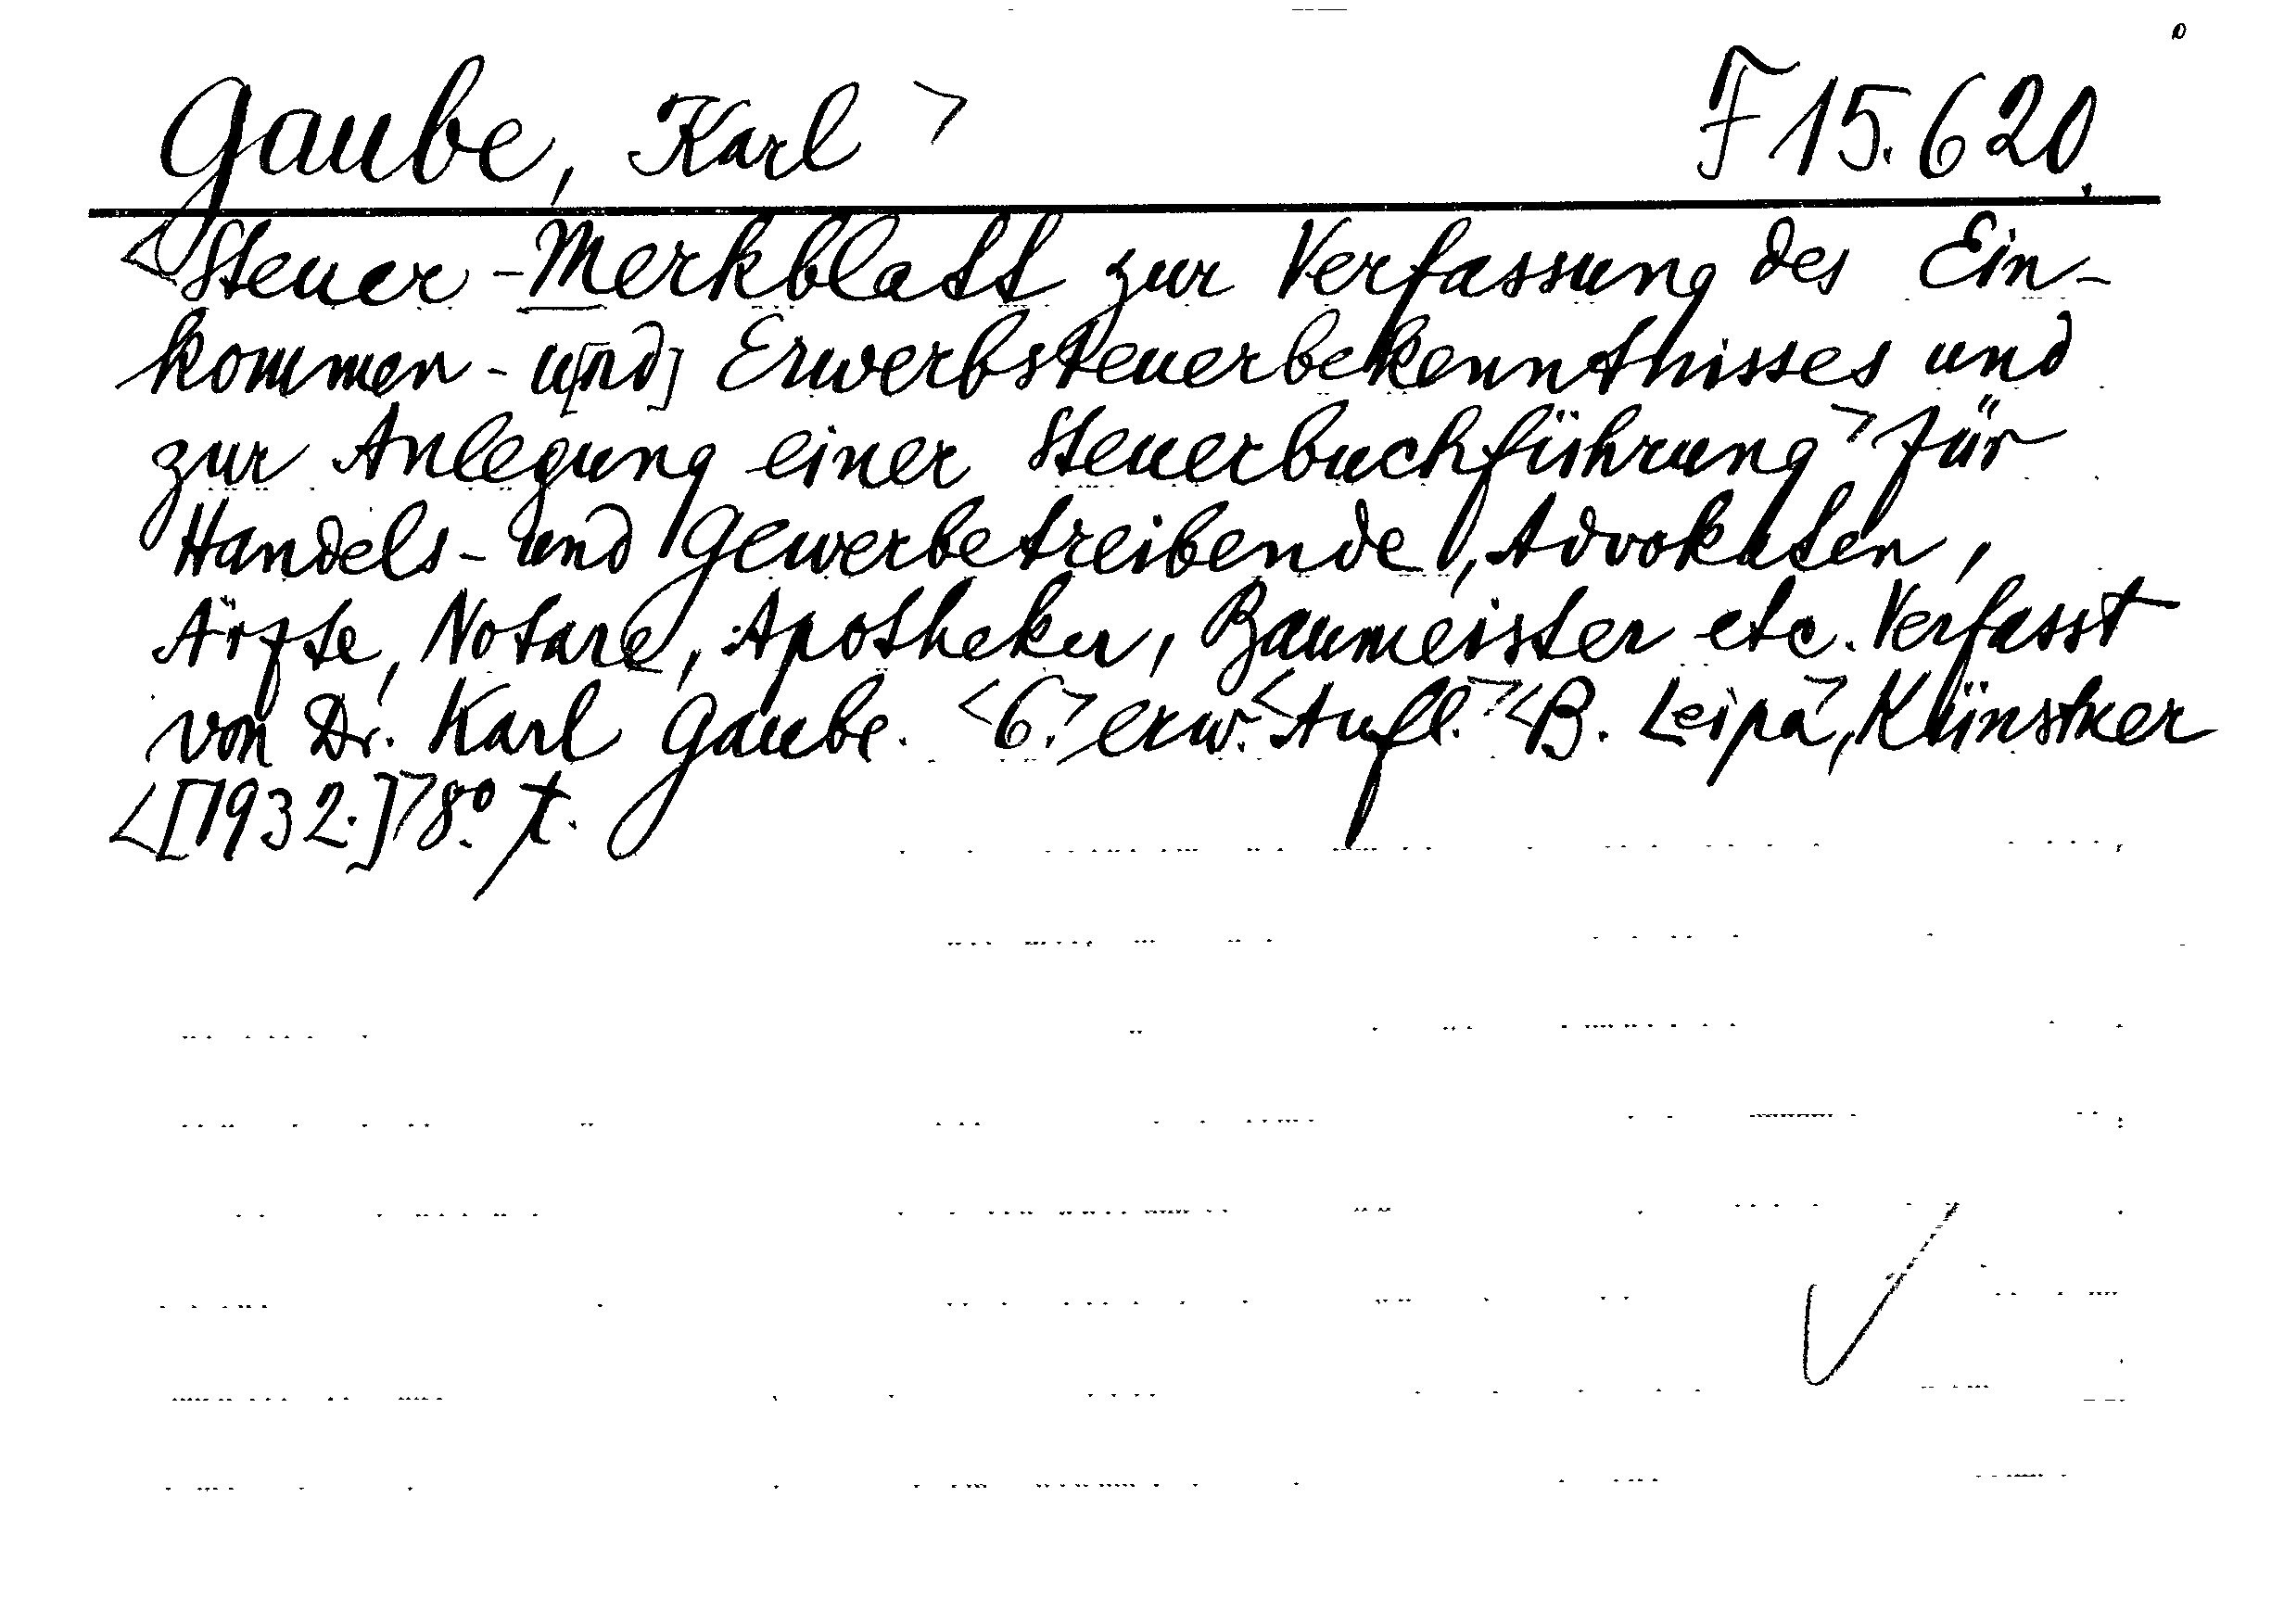 Gaube, Karl > F 15.620.
<Steuer-Merkblatt zur Verfassung des Ein-
kommen- u[nd] Erwerbsteuerbekenntnisses und
zur Anlegung einer Steuerbuchführung> für
Handels- und Gewerbetreibende, Advokaten,
Ärzte, Notare, Apotheker, Baumeister etc. Verfasst
von Dr. Karl Gaube. <6.> erw. <Aufl.> <B. Leipa>, Künstner
<[1932.]> 8°.